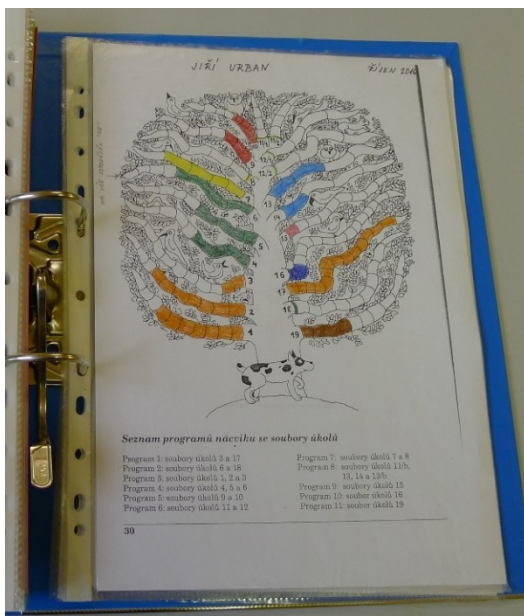 JIŘÍ URBAN
ŘÍJEN
11/1
12/1
12/2
7
13
14
6
15
5
4
16
3
17
2
18
1
19
Seznam programů nácviku se soubory úkolů
Program 1: soubory úkolů 3 a 17
Program 2: soubory úkolů 6 a 18
Program 3: soubory úkolů 1, 2 a 3
Program 4: soubory úkolů 4, 5 a 6
Program 5: soubory úkolů 9 a 10
Program 6: soubory úkolů 11 a 12
Program 7: soubory úkolů 7 a 8
Program 8: soubory úkolů 11/b,
13, 14 a 12/b
Program 9: soubory úkolů 15
Program 10: soubor úkolů 16
Program 11: soubor úkolů 19
30